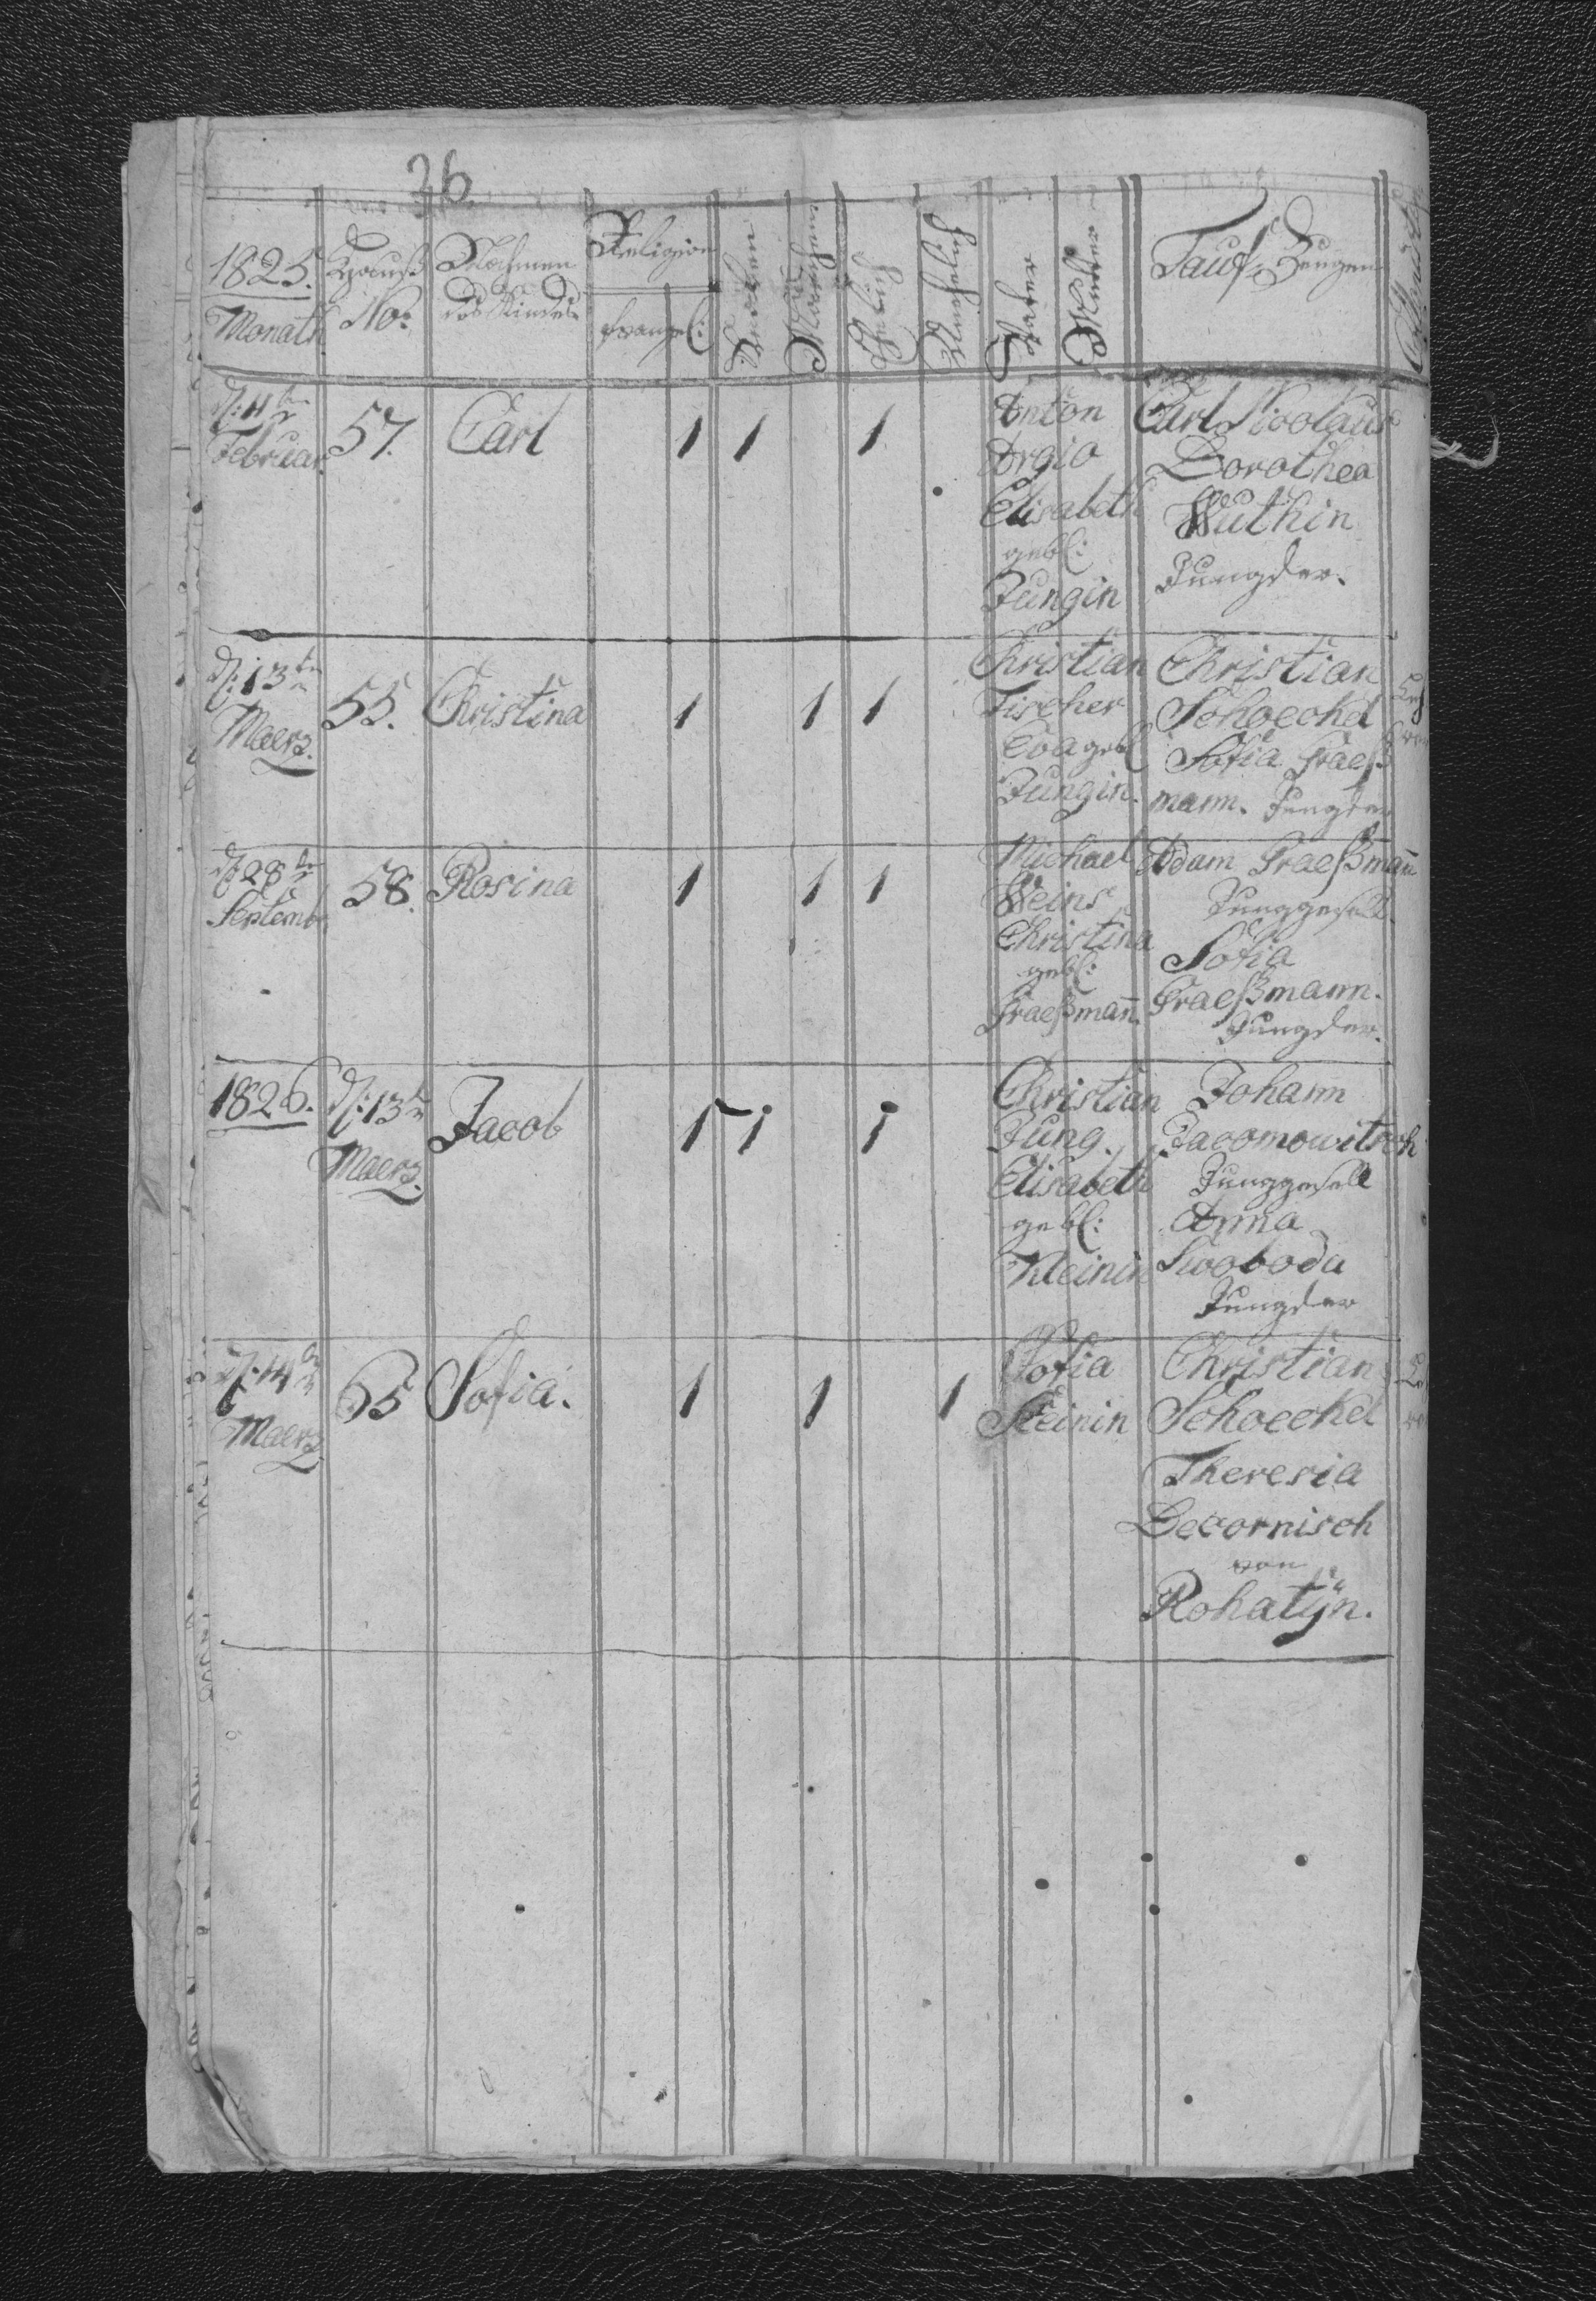 26
1825.
Monath
Hauß
No:
Nahmen
des Kindes
Religion
Evangel:
Knaben
Mædchen
Ehelich
Unehelich
Vater
Mutter
Tauf Zeugen
Februar.
57.
Carl
1 1 1
Anton
Argio
Elisabeth
gebl:
Jungin
Carl Nicolaus
Dorothea
Wuthin
Jungder.
d: 13tn
Maerz.
55.
Christina
1 1 1
Christian
Fischer
Eva gebl
Jungin.
Christian
Schoeckel
Sofia Praeß
mann. Jungder
d 28tn
Septemb
58.
Rosina
1 1 1
Michael
Weins
Christina
gebl:
Praeßman̄.
Adam Praeßman̄
Junggesell.
Sofia
Praeßmann.
Jungder.
1826.
d: 13tn
Maerz.
Jacob
1 1 1
Christian
Jung.
Elisabeth
gebl:
Kleinin
Johann
Jacomowitsch
Junggesell
Anna
Swoboda
Jungder
d: 14tn
Maerz
65
Sofia.
1 1 1
Sofia
Steinin
Christian
Schoeckel
Theresia
Decornisch
von
Rohatÿn.